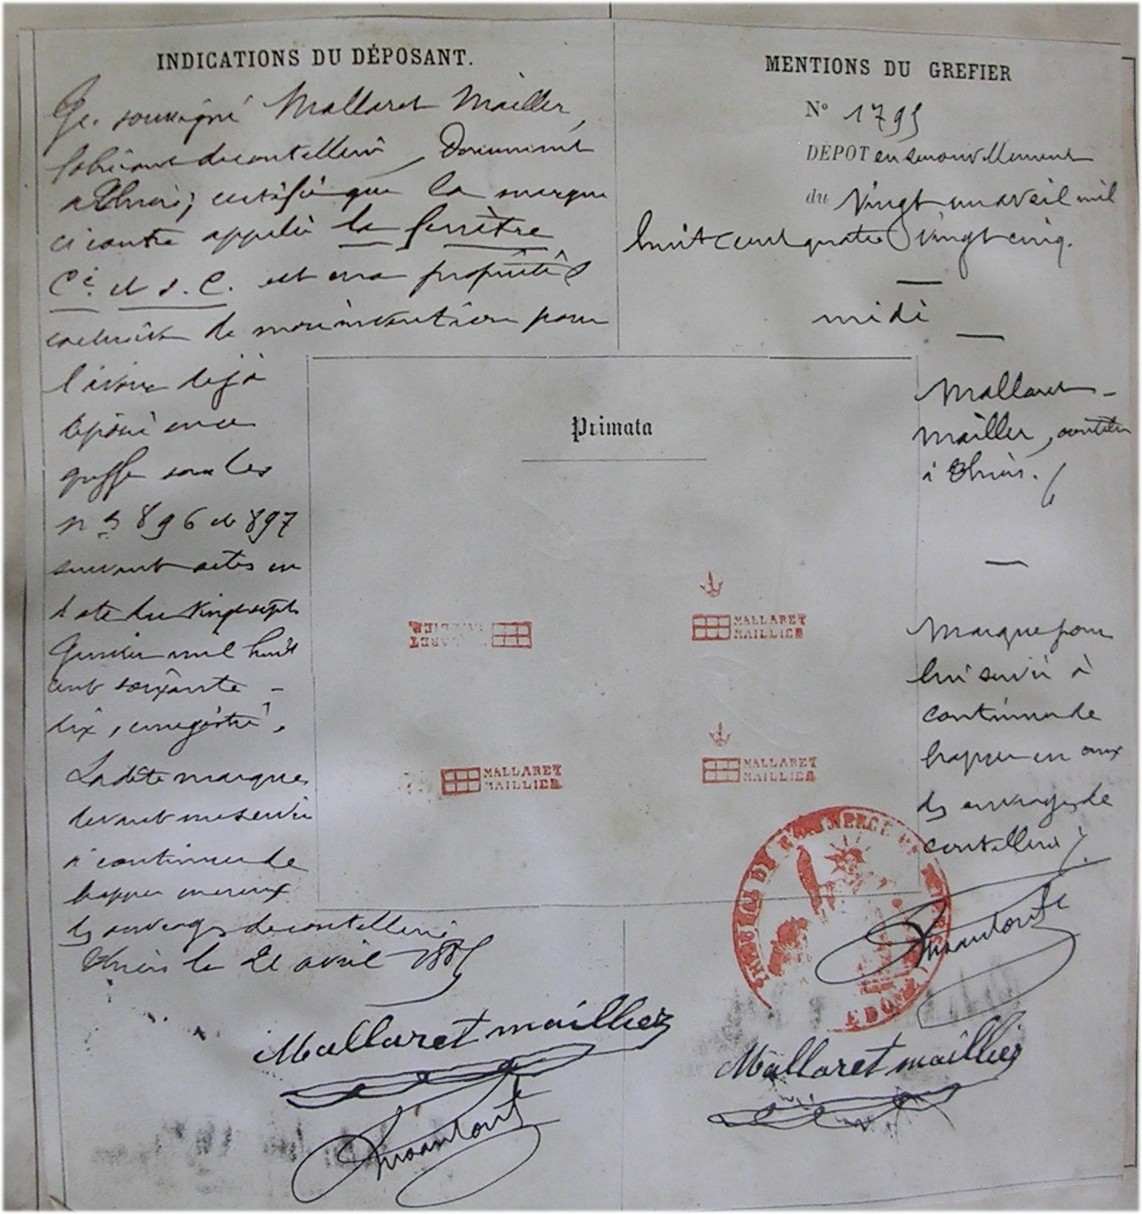 INDICATIONS DU DÉPOSANT.
Je soussigné Mallaret Mailler,
fabricant de coutellerie, Demeurant
à Thiers; certifie que la marque
ci contre appelée la fenêtre
et S.C. est ma propriété
de mon invention pour
l'avoir déjà
déposé en ce
greffe sous les
nos 896 et 897
suivant actes en
date du vingt sept
Janvier mil huit
cent soixante -
dix, enregistré.
La dite marque
devant me servir
à continuer de
frapper en creux
les ouvrages de coutellerie
Thiers le 21 avril 1885
Mallaret maillier
MENTIONS DU GREFIER
N° 1795
DÉPOT en renouvellement
du Vingt un avril mil
huit cent quatre vingt cinq.
midi
Mallaret -
Mailler, coutelier
à Thiers.
Marque pour
lui servir à
continuer de
frapper en creux
les ouvrages de
coutellerie.
Mallaret maillier
Primata
MALLARET
MAILLIER
MALLARET
MAILLIER
MALLARET
MAILLIER
MALLARET
MAILLIER